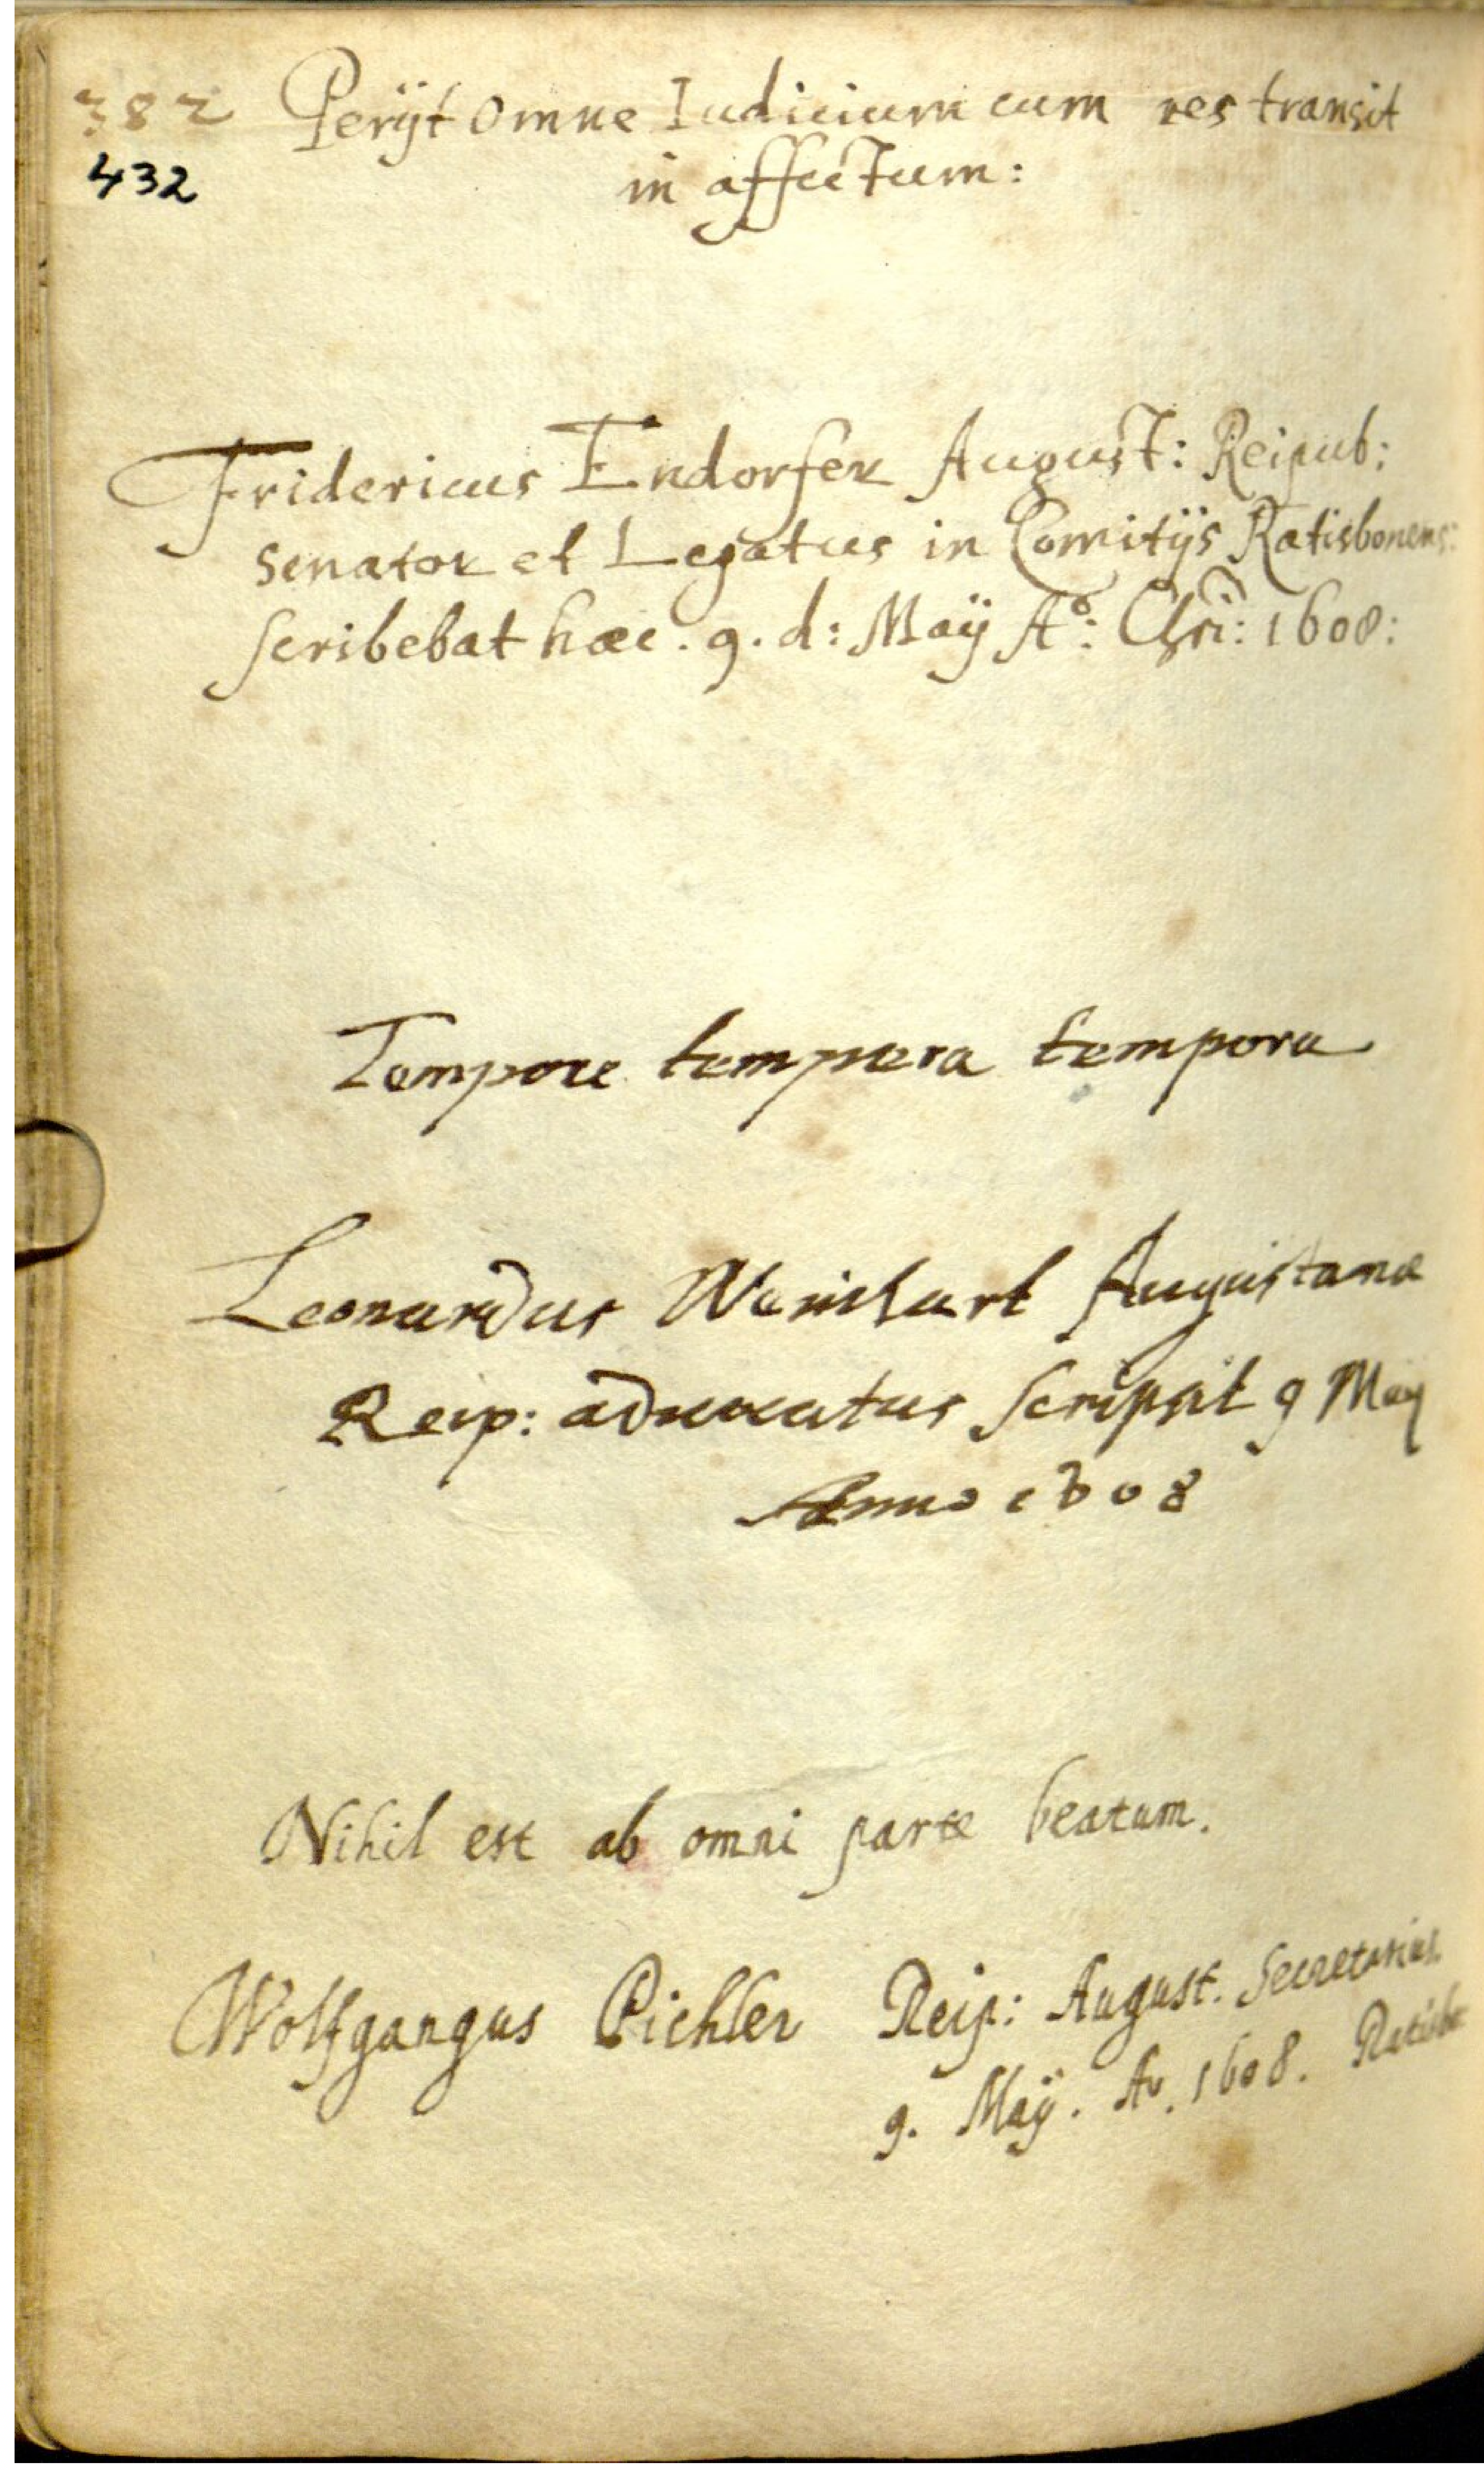 382 Perÿt omne Iudicium cum res transit
432
in affectum:
Fridericus Endorfer August: Reipub:
senator et Legatus in Comitÿs Ratisbonens:
scribebat haec. 9. d: Maÿ Aº: Chri: 1608:
Tempore tempera tempora
Leonardus Weinhart Augustanae
Reip: advocatus scripsit 9 Maij
Anno 1608
Nihil est ab omni parte beatum.
Wolfgangus Pichler Reip: August. Secretarius.
9. Maÿ. Aº. 1608. Ratisb